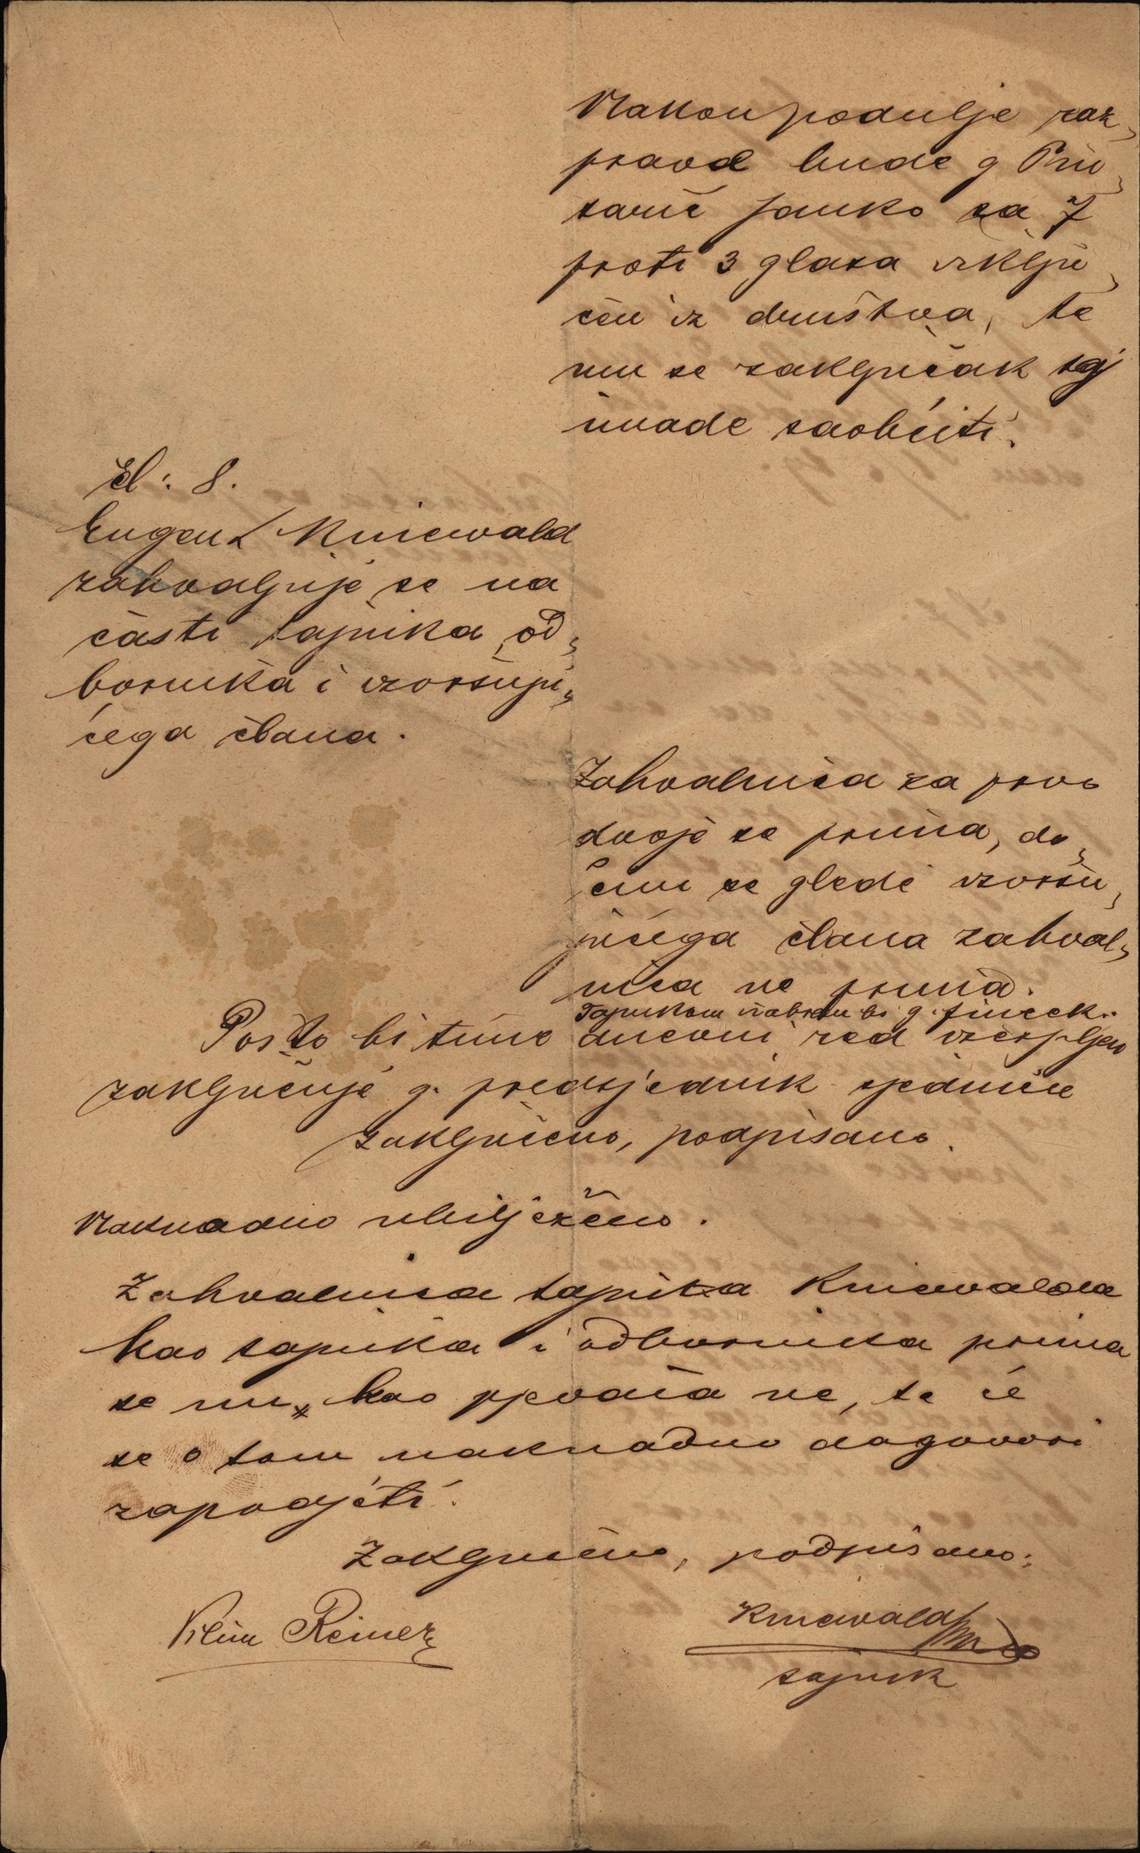 Nakon podulje raz-
prave bude g
Janko sa 7
proti 3 glasa isklju-
čen iz društva, te
mu se zaključak taj
imade saobćiti.
čl: 8.
Eugen Kniewald
zahvaljuje se na
časti tajnika, od-
bornika i izvršuju-
ćega člana.
Zahvalnica za prvo
dvoje se prima, do-
čim se gledé izvršu-
jućega člana zahval-
nica ne prima.
Tajnikom izabran bi g. Fincek.
Pošto bi time dnevni red izcrpljen
zaključuje g. predsjednik sjednice
zaključeno, podpisano.
Naknadno ubilježeno.
Zahvalnica tajnika Kniewalda
kao tajnika i odbornika prima
se mu, kao pjevača ne, te će
se o tom naknadno dogovori
zapodjeti.
Zaključeno, podpisano:
Vilim Reiner
Kniewald
tajnik